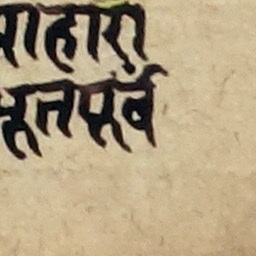 माहारा
भूतपूर्व